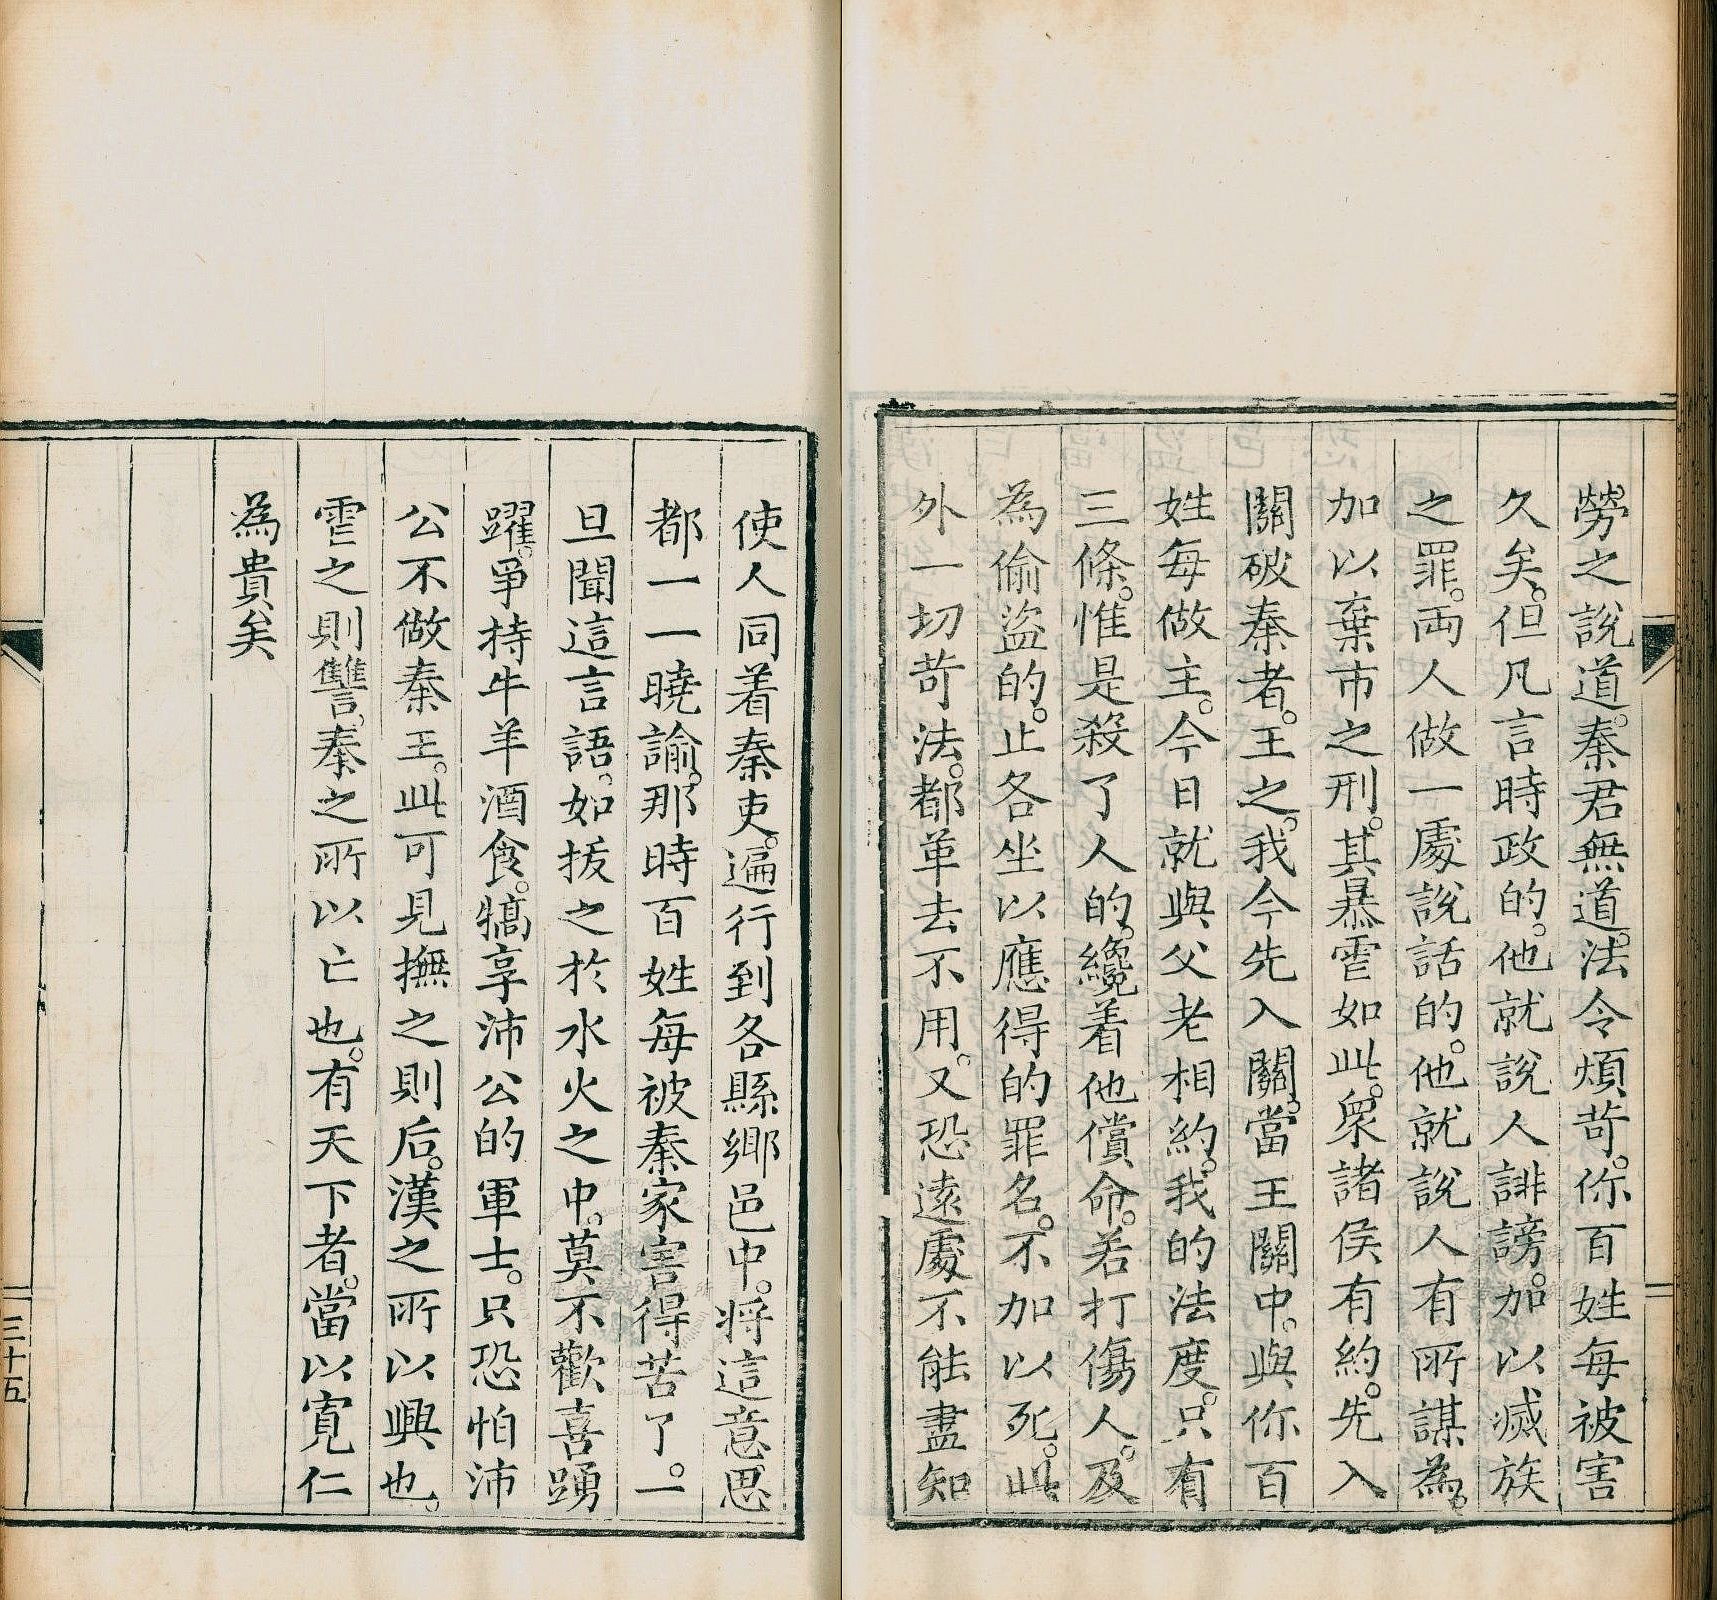 勞之說道。秦君無道。法令煩苛。你百姓每被害
久矣。但凡言時政的。他就說人誹謗。加以滅族
之罪。兩人做一處說話的。他就說人有所謀為。
加以棄市之刑。其暴虐如此。衆諸侯有約。先入
關破秦者。王之。我今先入關。當王關中。與你百
姓每做主。今日就與父老相約。我的法度。只有
三條。惟是殺了人的。纔着他償命。若打傷人。及
為偷盜的。止各坐以應得的罪名。不加以死。此
外一切苛法。都革去不用。又恐遠處不能盡知
使人同着秦吏。遍行到各縣鄉邑中。將這意思
都一一曉諭。那時百姓每被秦家害得苦了。一
旦聞這言語。如拔之於水火之中。莫不歡喜踴
躍。爭持牛羊酒食。犒享沛公的軍士。只恐怕沛
公不做秦王。此可見撫之則后。漢之所以興也。
虐之則讐。秦之所以亡也。有天下者。當以寬仁
為貴矣
三十五